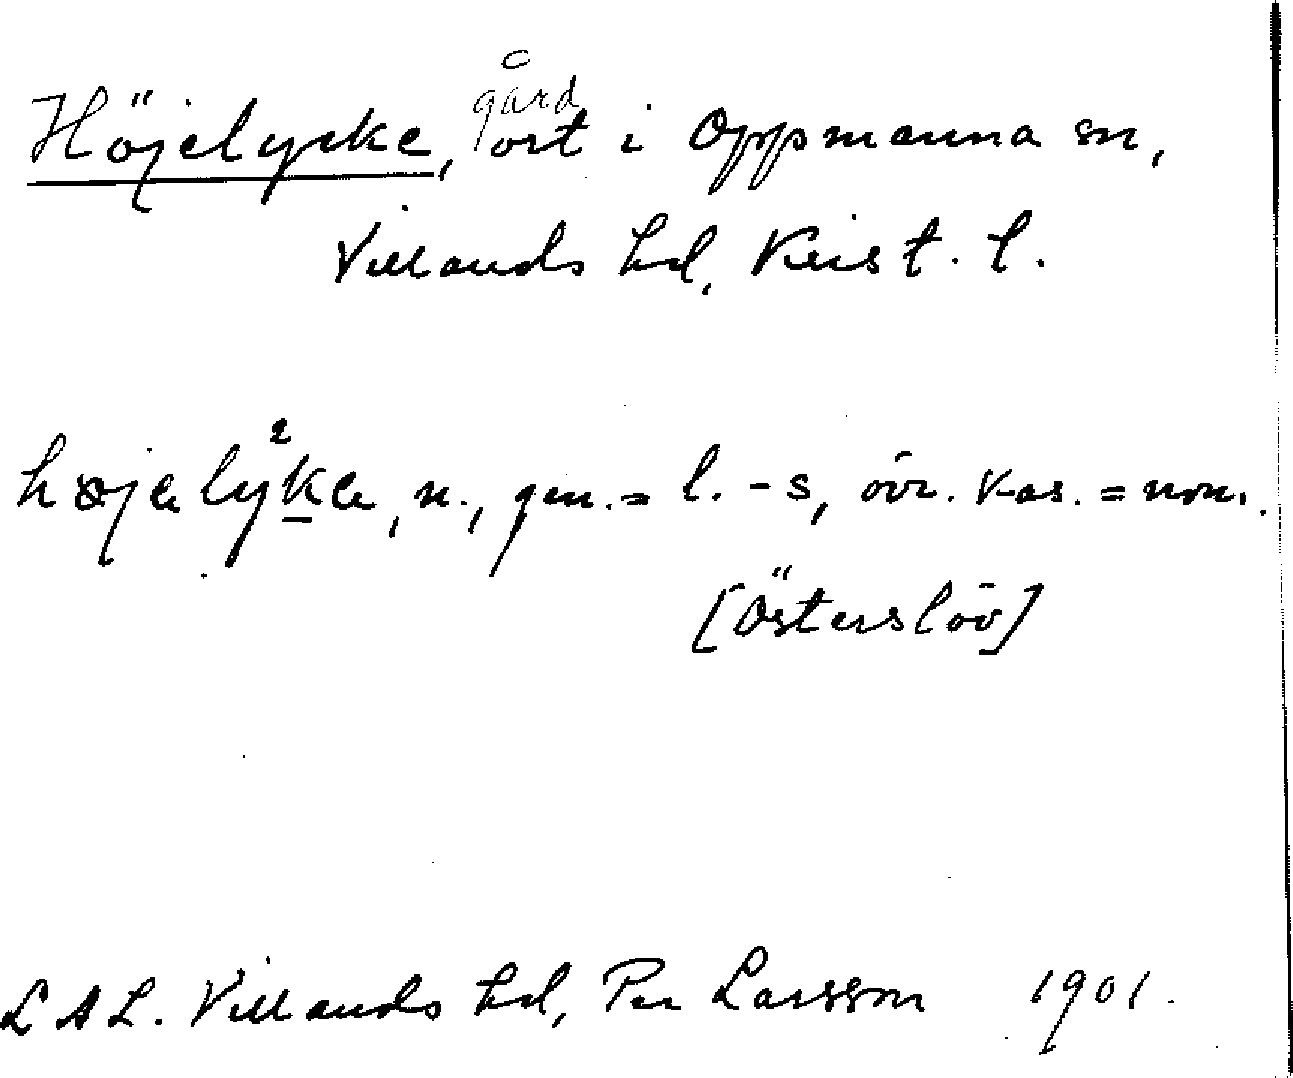 Höjelycke, gård ort i Oppmanna sn,
Villands hd, Krist. l.
højelyke, n., gen. = l. -s, övr. kas. = nom.
[Österslöv]
LAL. Villands hd, Per Larsson 1901.